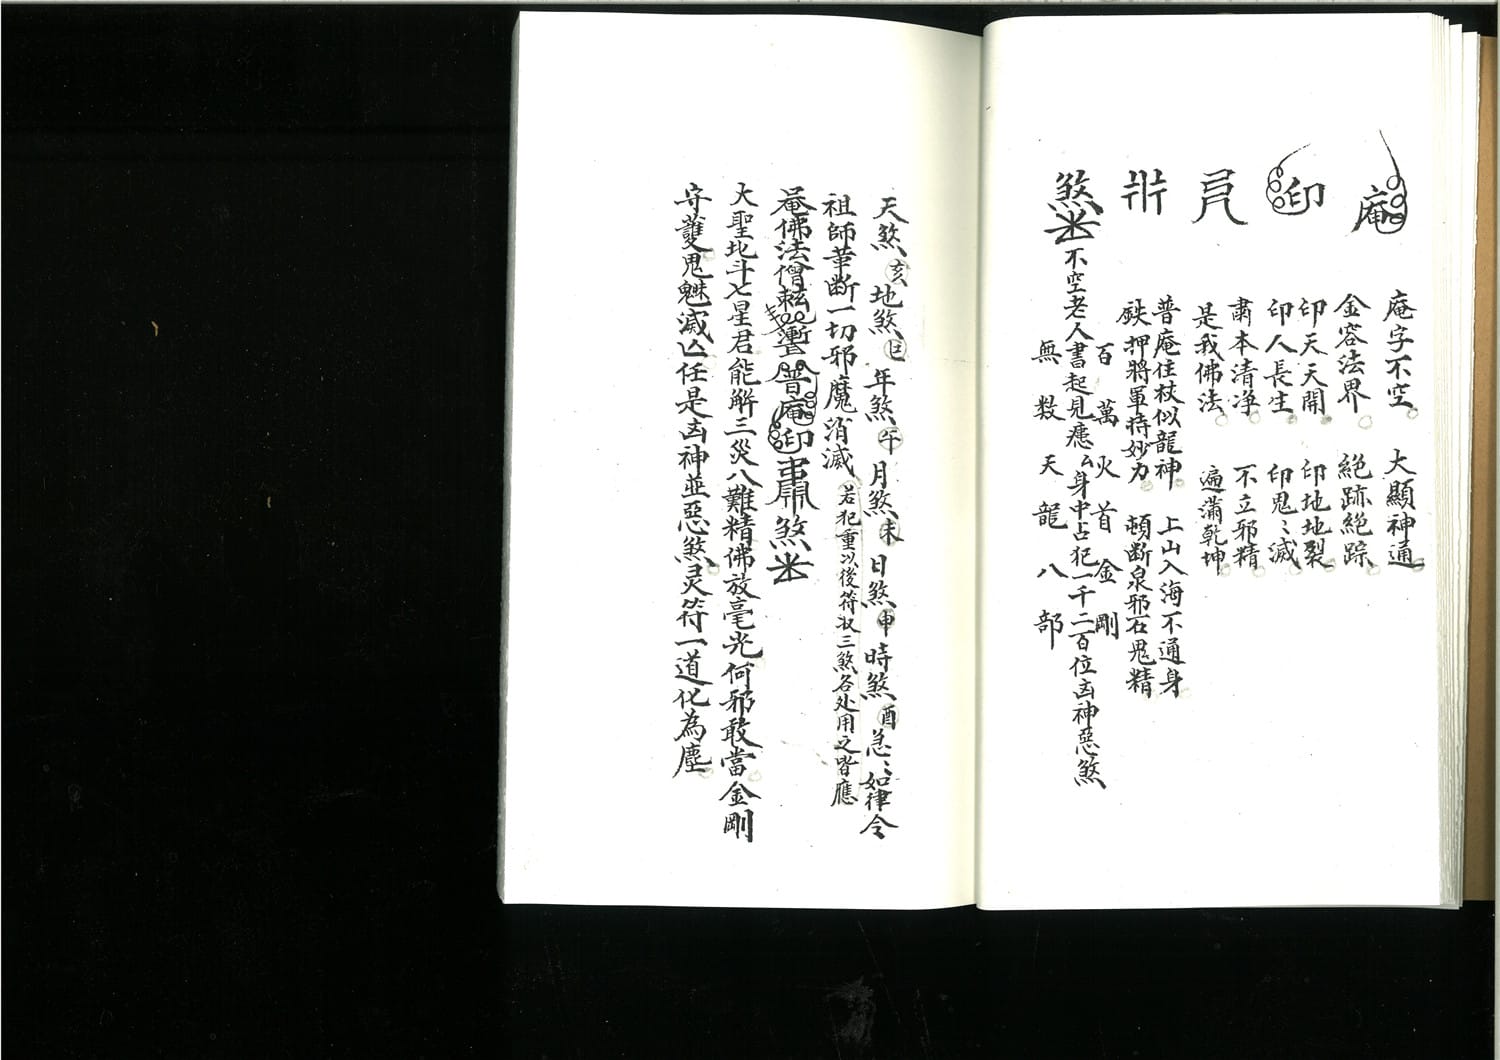 庵
庵字不空 大顯神通
金容法界 絕跡絕踪
印
印天天開 印地地裂
印人長生 印鬼〻滅
肅本清净 不立邪精
是我佛法 遍滿乾坤
普庵住杖似龍神 上山入海不通身
鉄押將軍持妙力 頓斷泉邪石鬼精
百萬火首金剛
煞 不空老人書起見應ム身中占犯一千二百位凶神惡煞
無数天龍八部
天煞亥地煞巳年煞午月煞未日煞申時煞酉急〻如律令
祖師筆斷一切邪魔消滅 若犯重以後符収三煞各处用之皆應
菴佛法僧 普庵印 煞
大聖北斗七星君能解三災八難精佛放毫光何邪敢當金剛
守護鬼魅滅亾任是凶神並惡煞灵符一道化為塵